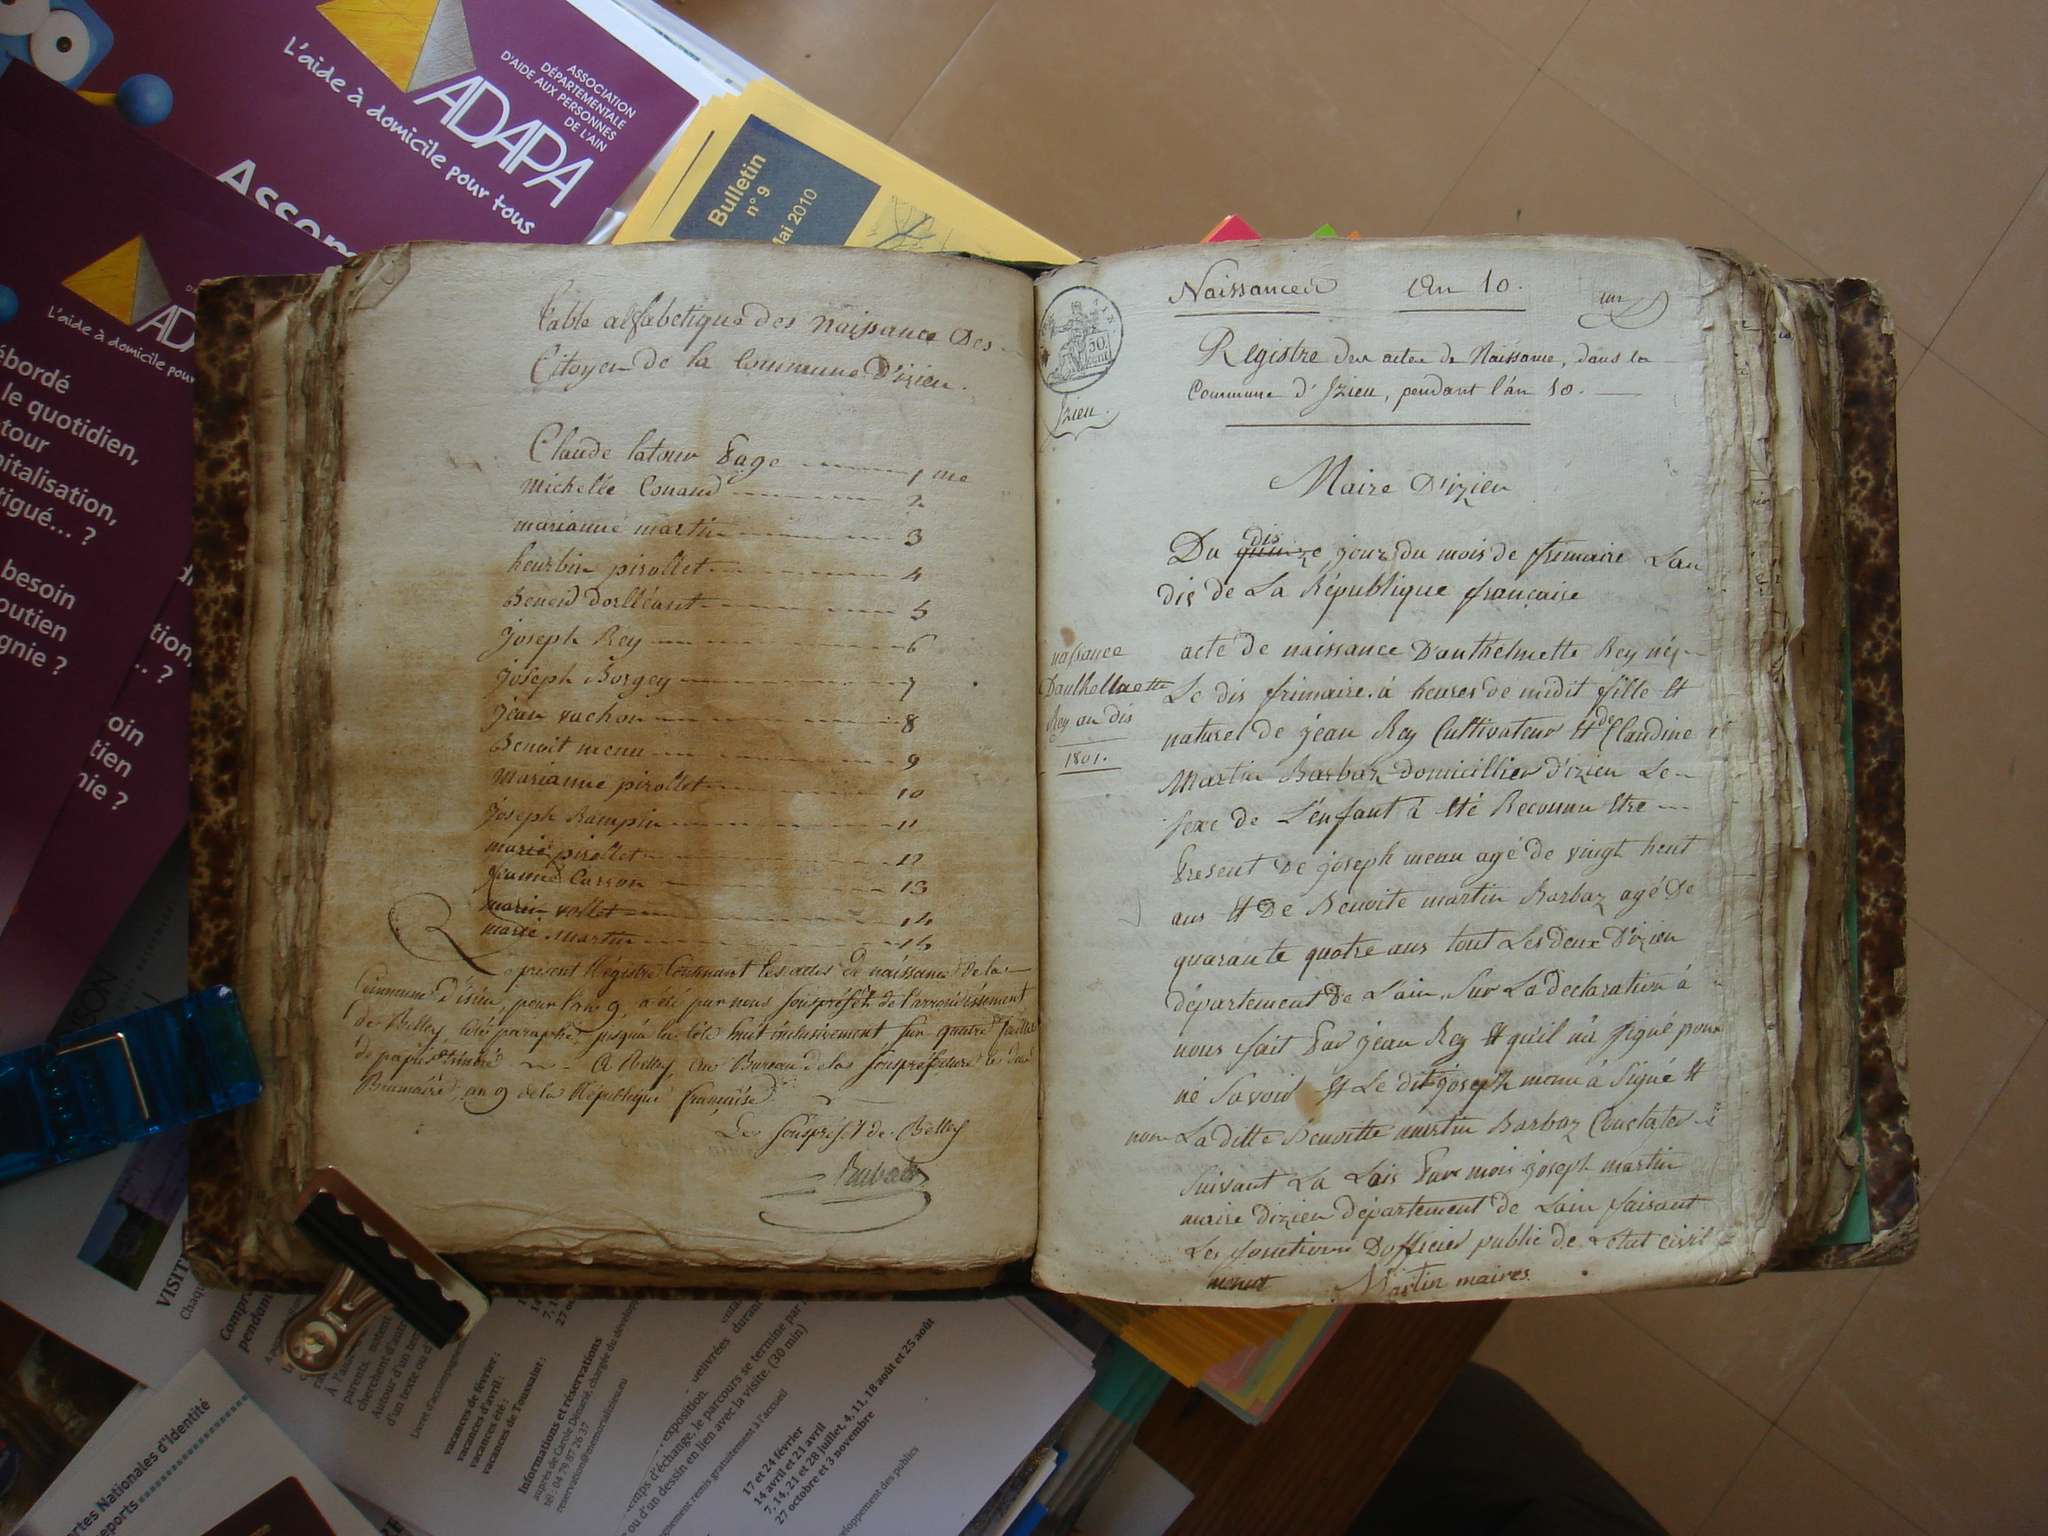 L'aide à domicile pour tous
ADAPA
ASSOCIATION
DÉPARTEMENTALE
D'AIDE AUX PERSONNES
DE L'AIN
Bulletin
n° 9
Mai 2010
L'aide à domicile pour
le quotidien,
besoin
Table alfabetique des naissance Des
Citoyen de la Commune D'izieu.
Claude latour Page 1 me
michelle Couand 2
marianne martin 3
pirollet 4
Benoid dorlléant 5
joseph Rey 6
joseph Borgey 7
jean vachon 8
Benoit menu 9
Marianne pirollet 10
joseph Rampin 11
marie pirollet 12
jeanne Carron 13
marie vollet 14
marie martin 14
present Régistre Contenant les actes de naissance de la
Commune d'isieu, pour l'an 9, a été par nous souspréfet de l'arrondissement
de Belley coté paraphé, jusqu'a la cote huit inclusivement sur quatre feuilles
de papier timbré A Belley, au Bureau de la souspréfecture le
Brumaire, an 9 de la République française
Le souspréfet de Belley
Naissances An 10. un
Registre des actes de Naissance, dans la
Commune d'Izieu, pendant l'an 10.
30
Izieu.
Maire D'izieu
Du quinze dis jour du mois de frimaire Lan
dis de La République française
naissance
Danthelmette
Rey an dis
1801.
acte de naissance D'anthelmette Rey néz
Le dis frimaire à heures de midit fille Et
naturel de jean Rey Cultivateur Et de Claudine
Martin Barbaz domicillier d'izieu Le
sexe de L'enfant à Eté Reconnu Etre
Present De joseph menu agé de vingt heut
ans Et De Benoite martin Barbaz agé De
quarante quatre ans tout Les deux D'izieu
département De L'ain, Sur La declaration à
nous fait Par jean Rey Et qu'il n'a signé pour
né Savoir Et Le dit joseph menu à Signé Et
non La ditte Benoitte martin Barbaz Constater
Suivant La Lois Par mois joseph martin
maire dizieu département de Lain faisant
Les fonctions Dofficier public de Létat civil
menu Martin maires
VISIT
vacances de février :
vacances d'avril :
vacances été :
vacances de Toussaint :
Informations et réservations
auprès de Carole Dénarié, chargée du dévelop
tél : 04 79 87 26 37
reservation@memorializieu.eu
exposition.
temps d'échange, le parcours se termine par
ou d'un dessin en lien avec la visite. (30 min)
gnement remis gratuitement à l'accueil
17 et 24 février
14 avril et 21 avril
7, 14, 21 et 28 juillet, 4, 11, 18 août et 25 août
27 octobre et 3 novembre
développement des publics
Cartes Nationales d'Identité